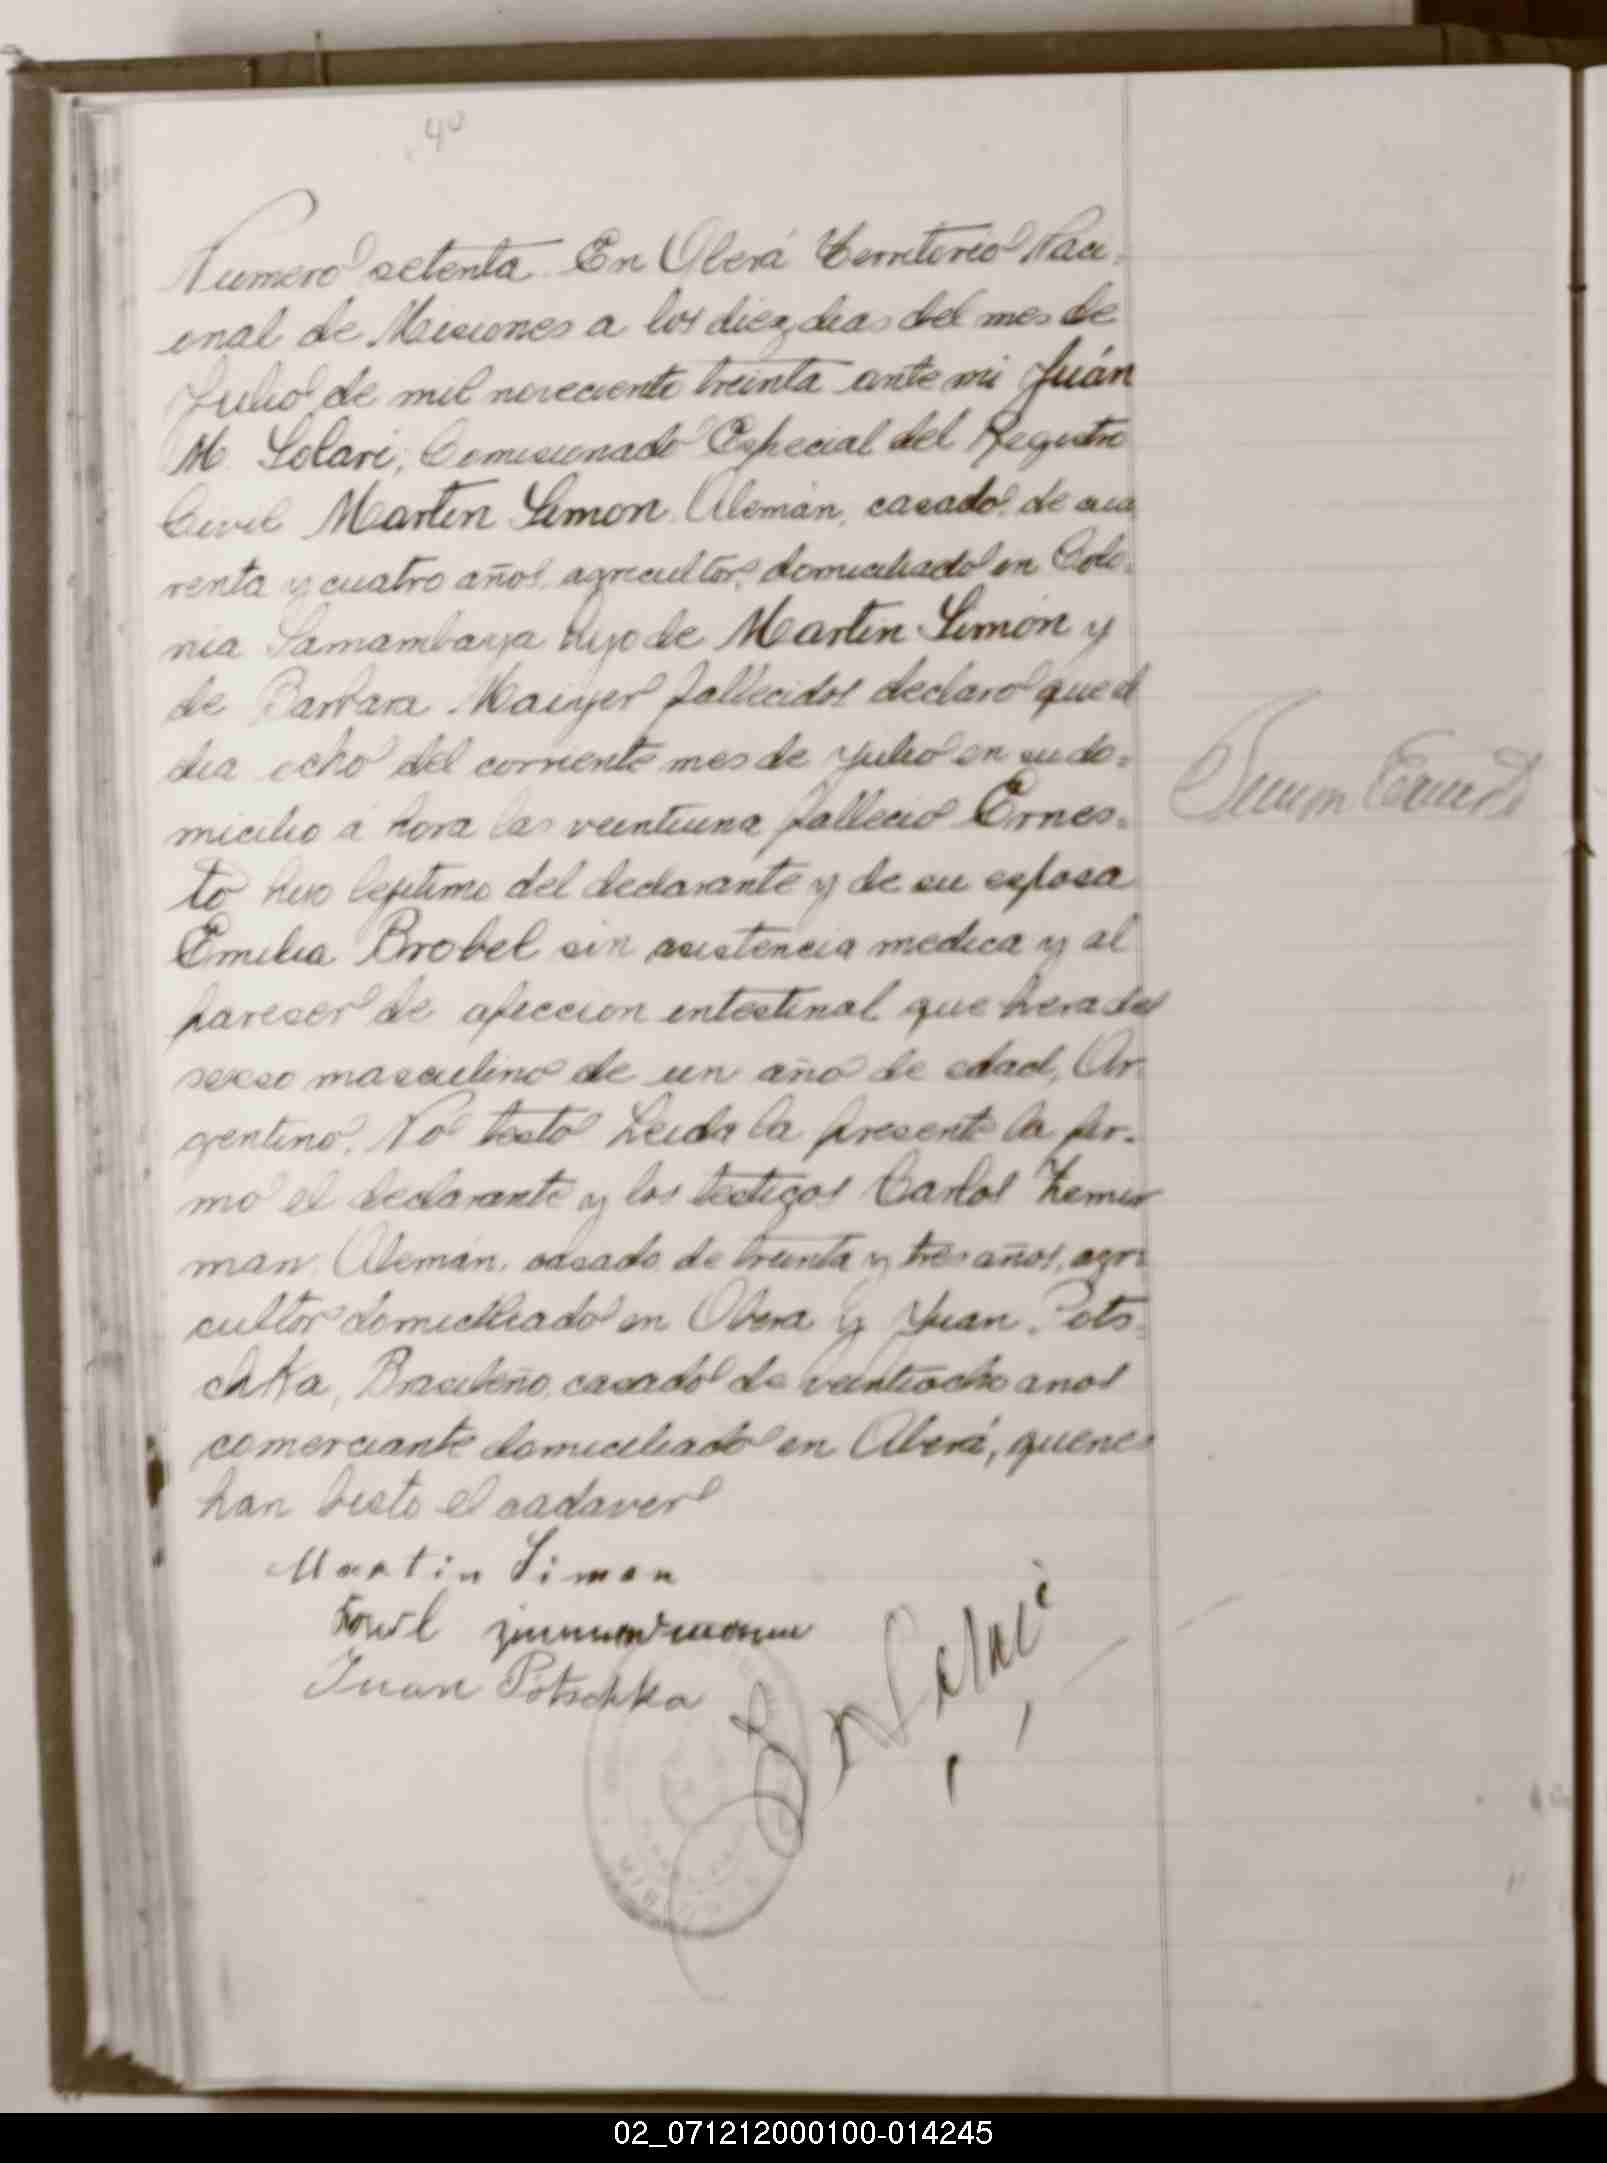 40
Numero setenta. En Oberá Territorio Naci-
onal de Misiones a los diez dias del mes de
Julio de mil noveciento treinta ante mi Juán
M. Solari, Comisionado Especial del Registro
Civil Martin Simon. Alemán, casado, de cua
renta y cuatro años, agricultor, domiciliado en Colo-
nia Samambaya hijo de Martin Simón y
de Barbara Maiyer fallecidos declaro que el
dia ocho del corriente mes de Julio en su do-
micilio á hora las veintiuna fallecio Ernes-
to hijo legitimo del declarante y de su esposa
Emilia Brobel sin asistencia medica y al
pareser de afeccion intestinal que hera del
sexso masculino de un año de edad, Ar
gentino. No testo Leida la presente la fir-
mo el declarante y los testigos Carlos Zemer
man. Alemán, casado de treinta y tres años, agri
cultor domicileado en Obera y Juan Pots-
chka, Brasileño, casado de veintiocho anos
comerciante domiciliado en Oberá, quenes
han bisto el cadaver
Martin Simon
Juan Potschka
Solari
02_071212000100-014245